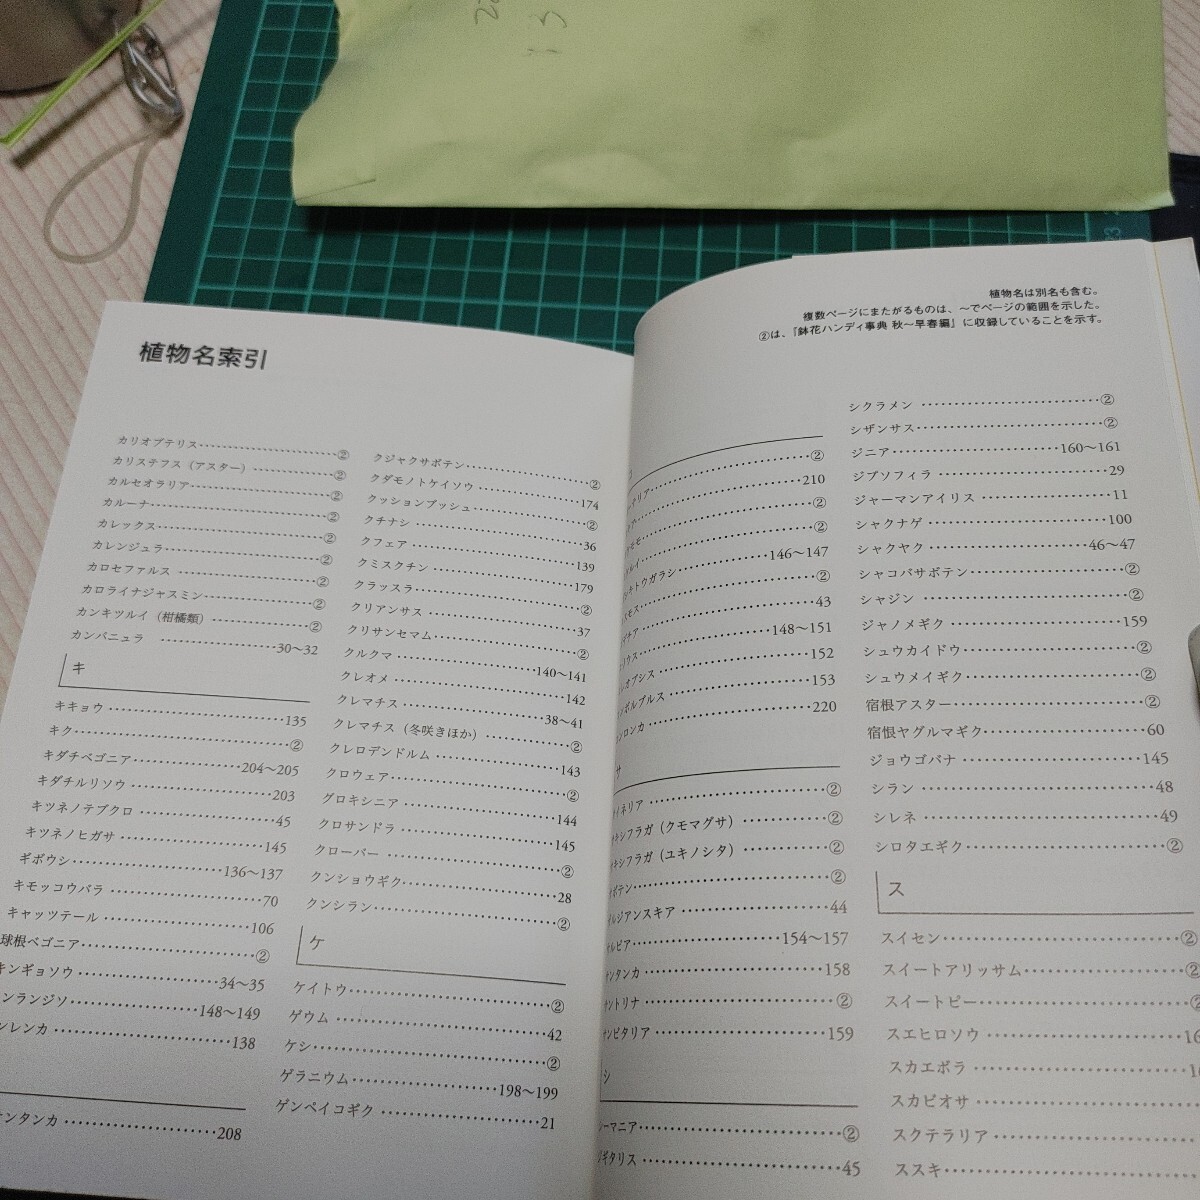 植物名索引
カリオプテリス②
カリステフス（アスター）②
カルセオラリア②
カルーナ②
カレックス②
カレンジュラ②
カロセファルス②
カロライナジャスミン②
カンキツルイ（柑橘類）②
カンパニュラ 30〜32
キ
キキョウ135
キク②
キダチベゴニア204〜205
キダチルリソウ203
キツネノテブクロ45
キツネノヒガサ145
ギボウシ136〜137
キモッコウバラ70
キャッツテール106
球根ベゴニア②
キンギョソウ34〜35
ンランジソ148〜149
ンレンカ138
ンタンカ208
クジャクサボテン②
クダモノトケイソウ174
クッションブッシュ②
クチナシ36
クフェア139
クミスクチン179
クラッスラ②
クリアンサス37
クリサンセマム②
クルクマ140〜141
クレオメ142
クレマチス38〜41
クレマチス（冬咲きほか）②
クレロデンドルム143
クロウェア②
グロキシニア144
クロサンドラ145
クローバー②
クンショウギク28
クンシラン②
ケ
ケイトウ②
ゲウム42
ケシ②
ゲラニウム198〜199
ゲンペイコギク21
植物名は別名も含む。
複数ページにまたがるものは、〜でページの範囲を示した。
②は、『鉢花ハンディ事典 秋〜早春編』に収録していることを示す。
②
210
②
②
シキトウガラシ146〜147
スモス②
43
148〜151
オプシス152
ンボルブルス153
ンロンカ220
サ
イネリア②
キシフラガ（クモマグサ）②
キシフラガ（ユキノシタ）②
ボテン②
ルジアンスキア44
ルビア154〜157
ンタンカ158
ントリナ②
ンビタリア159
シ
ーマニア②
ギタリス45
シクラメン②
シザンサス②
ジニア160〜161
ジプソフィラ29
ジャーマンアイリス11
シャクナゲ100
シャクヤク46〜47
シャコバサボテン②
シャジン②
ジャノメギク159
シュウカイドウ②
シュウメイギク②
宿根アスター②
宿恨ヤグルマギク60
ジョウゴバナ145
シラン48
シレネ49
シロタエギク②
ス
スイセン②
スイートアリッサム②
スイートピー②
スエヒロソウ
スカエボラ
スカビオサ
スクテラリア
ススキ